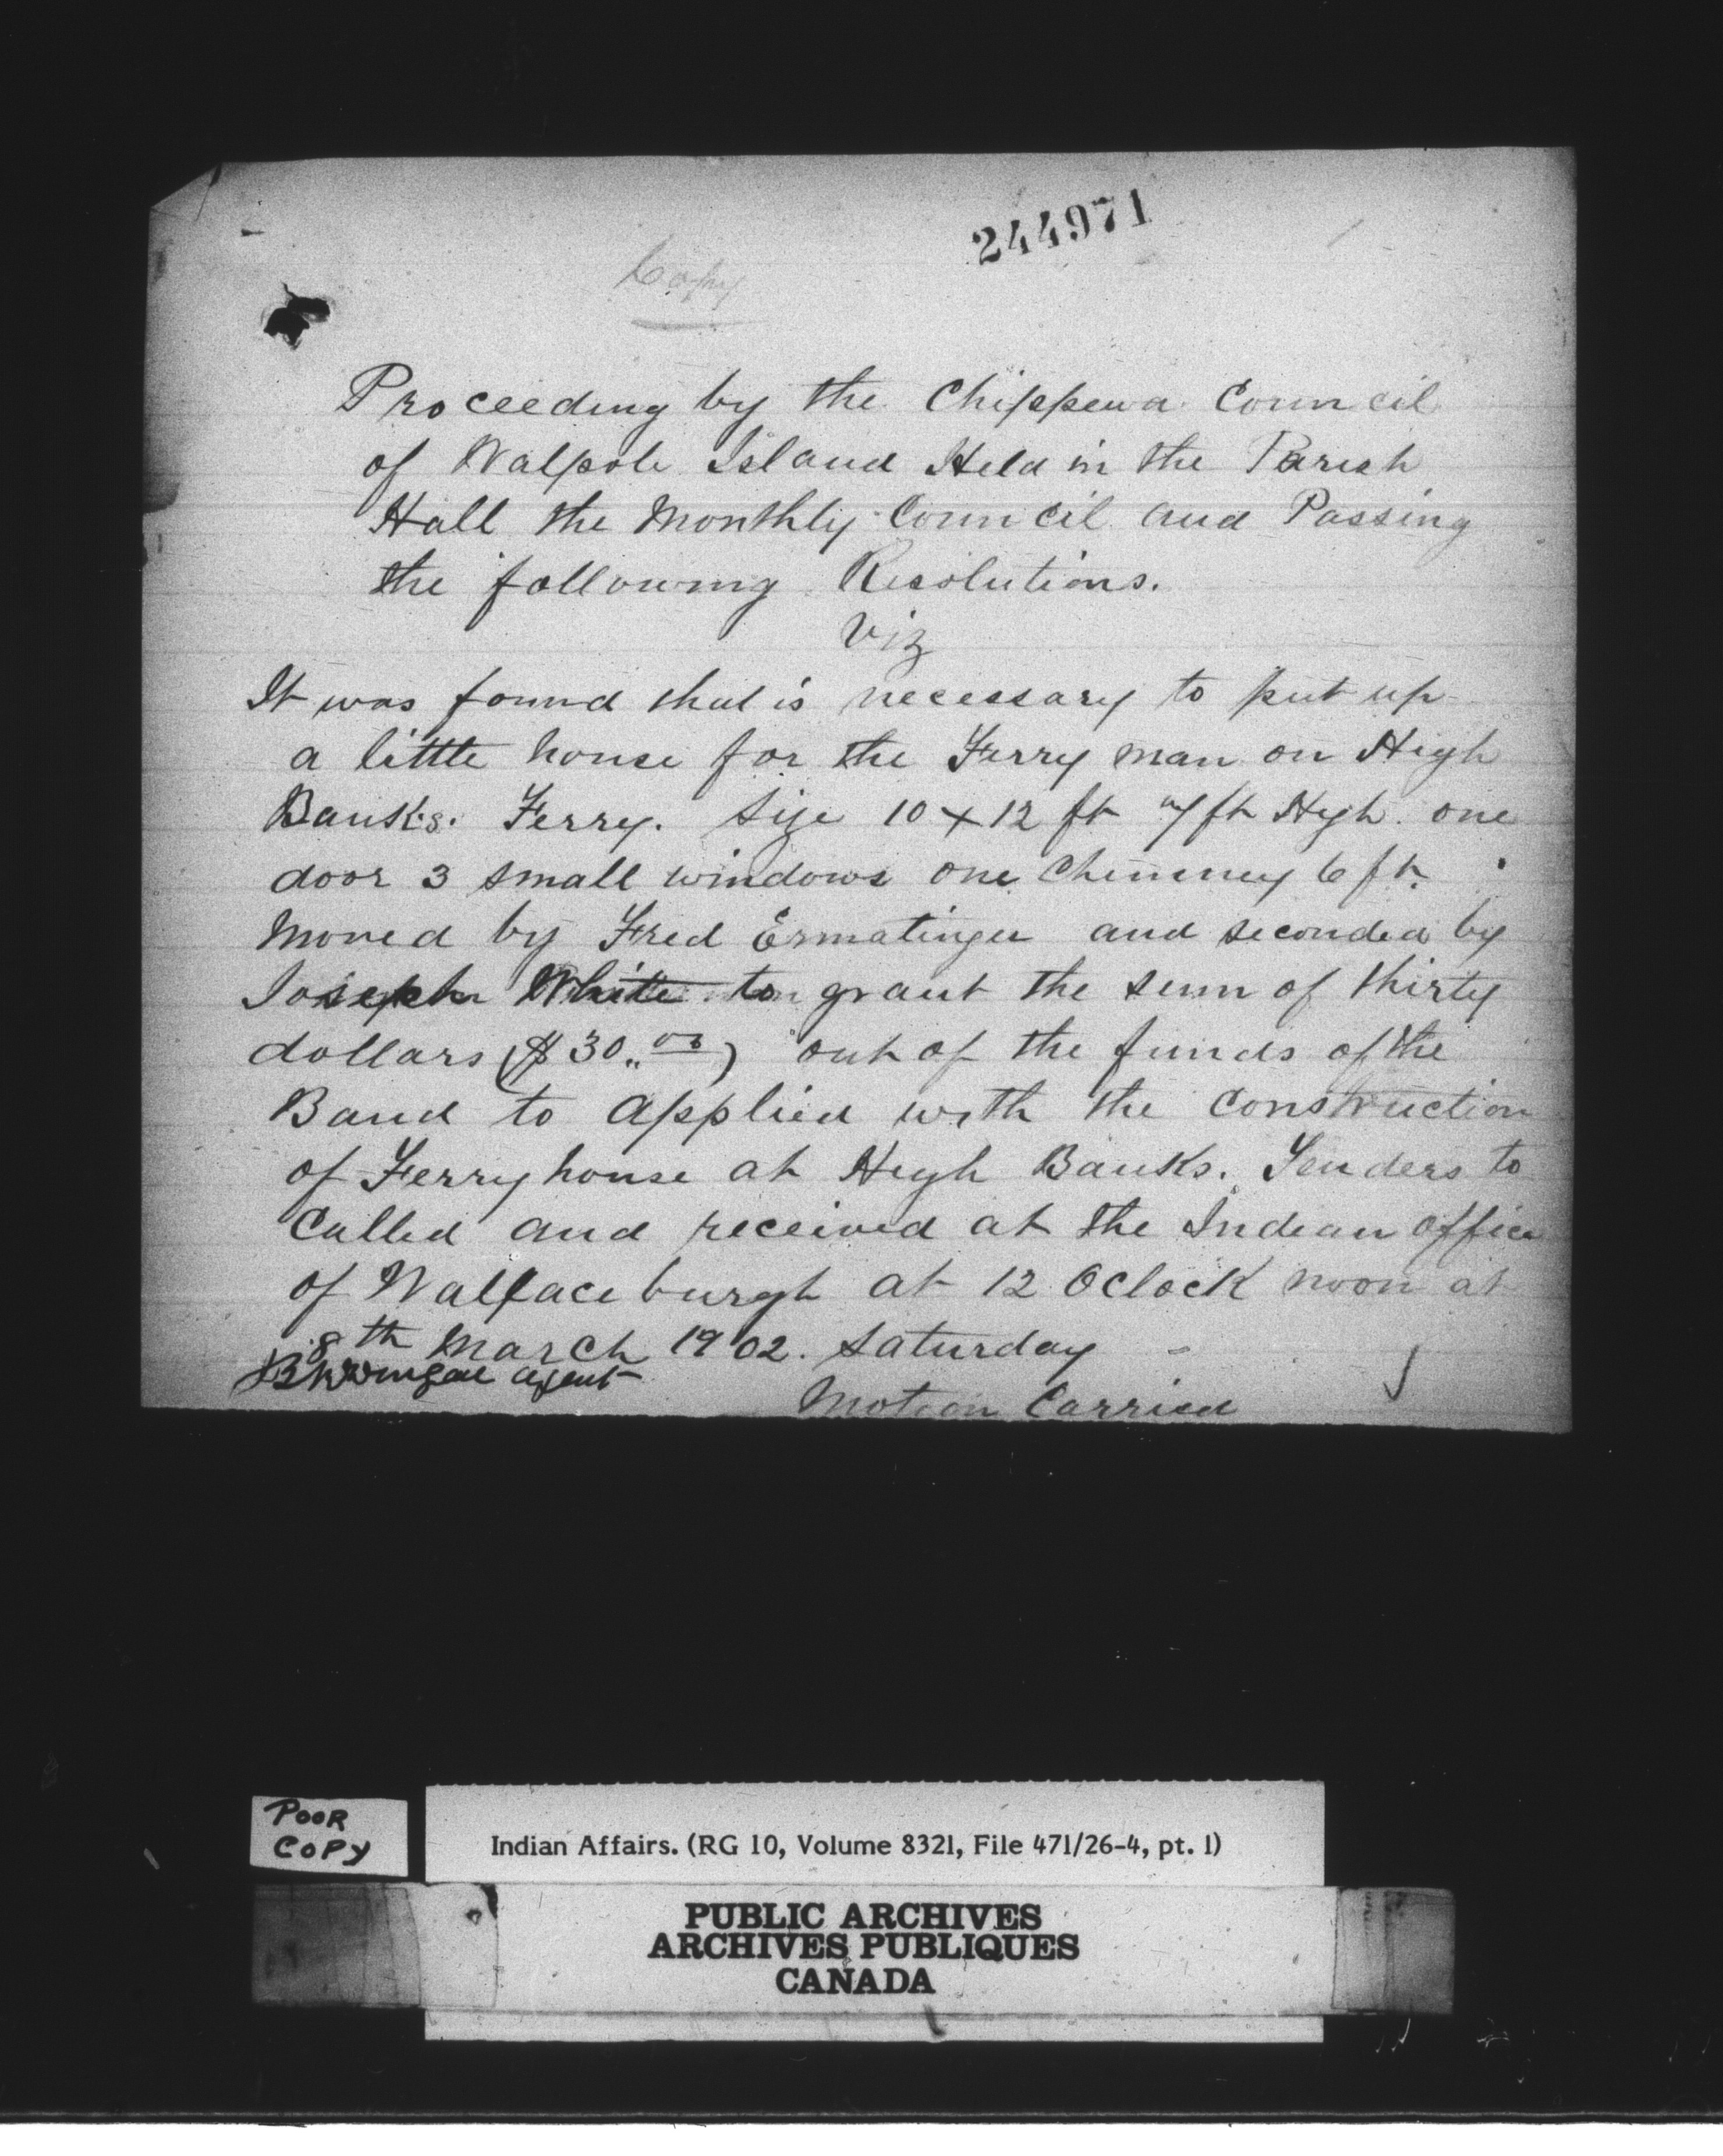 244971
Copy
Proceeding by the Chippewa Council
of Walpole Island Held in the Parish
Hall the Monthly Council and Passing
the following Resolutions.
Viz
It was found that is necessary to put up
a little house for the Ferry man on High
Banks. Ferry. Size 10 x 12 ft 7 ft High. one
door 3 small windows one Chimney 6 ft.
Moved by Fred Ermatinger and seconded by
Joseph White to grant the sum of thirty
dollars ($30.00) out of the funds of the
Band to applied with the Construction
of Ferry house at High Banks. Tenders to
Called and received at the Indian Office
of Wallaceburgh at 12 Oclock noon at
8th March 1902. Saturday
agent
Motion Carried
POOR
COPY
Indian Affairs. (RG 10, Volume 8321, File 471/26-4, pt. 1)
PUBLIC ARCHIVES
ARCHIVES PUBLIQUES
CANADA